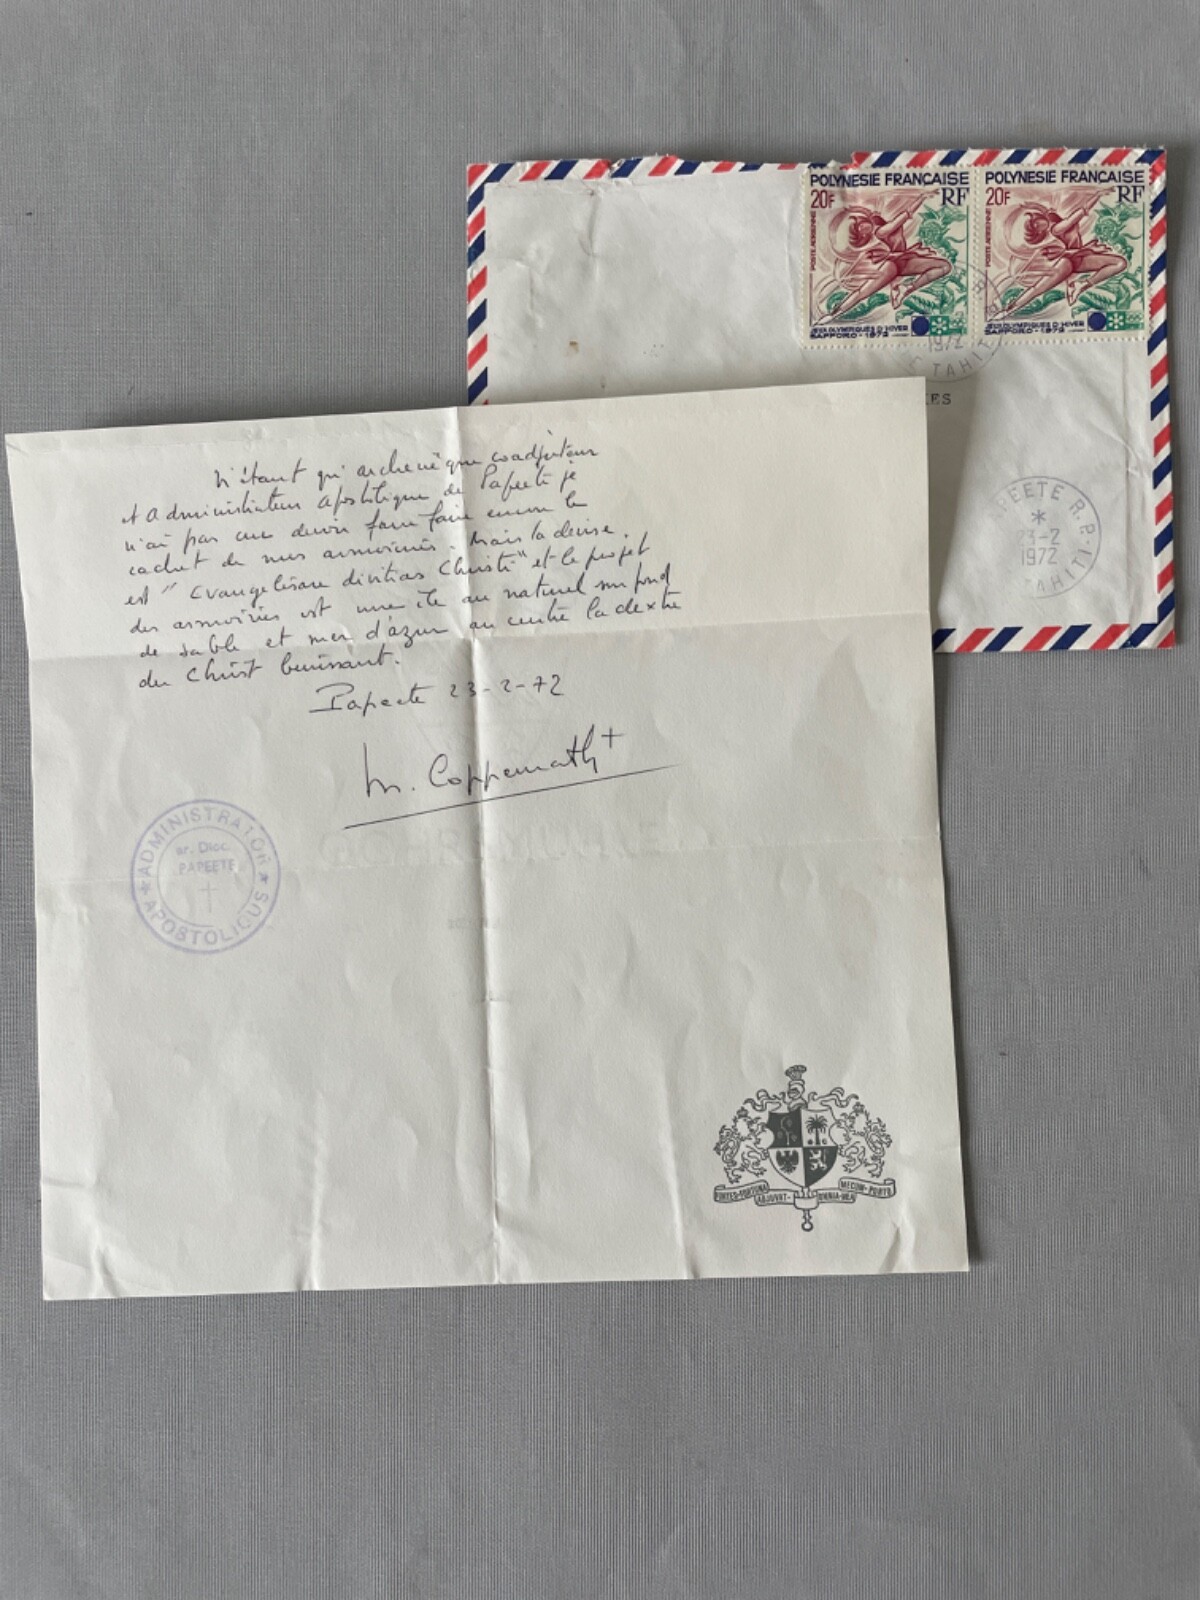 POLYNESIE FRANÇAISE
20F
RF
POSTE AERIENNE
JEUX OLYMPIQUES D'HIVER
SAPPORO-1972
POLYNESIE FRANÇAISE
20F
RF
POSTE AERIENNE
JEUX OLYMPIQUES D'HIVER
SAPPORO-1972
1972
TAHITI
PEETE R.P.
23-2
1972
TAHITI
N'étant qu'archevêque coadjuteur
et Administrateur Apostolique de Papeete je
n'ai pas cru devoir faire faire encore le
cachet de mes armoiries. Mais la devise
est "Evangelisare divitias Christi" et le projet
des armoiries est une île au naturel sur fond
de sable et mer d'azur au centre la dextre
du Christ bénissant.
Papeete 23-2-72
M. Coppenrath +
ADMINISTRATOR
APOSTOLICUS
ar. Dioc.
PAPEETE
FORTES-FORTUNA
ADJUVAT-
OMNIA-MEA
MECUM-PORTO